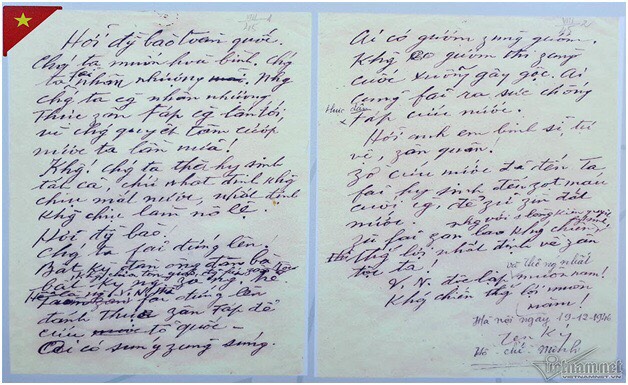 Hỡi đg bào toàn quốc.
Chg ta muốn hoà bình. Chg
ta đã nhân nhượng. Nhg
chg ta cg nhân nhượng
thực zân Fáp cg lấn tới,
vì chg quyết tâm cướp
nước ta lần nữa!
Khg! chg ta thà hy sinh
tất cả, chứ nhất định khg
chịu mất nước, nhất định
khg chịu làm nô lệ.
Hỡi đg bào!
Chg ta fải đứng lên.
Bất kỳ đàn ông đàn bà
bất kỳ ng zà ng trẻ.
fải đứng lên
đánh thực zân Fáp để
cứu tổ quốc –
Ai có súng zùng súng.
Ai có gươm zùng gươm.
Khg có gươm thì zùng
cuốc xuổng gậy gọc. Ai
cũng fải ra sức chống
thực dân
Fáp cứu nước.
Hỡi anh em binh sĩ tự
vệ, zân quân!
Zờ cứu nước đã đến. Ta
fải hy sinh đến zọt máu
cuối cg, để zữ zìn đất
nước.
Zù fải zan lao kháng chiến
thg lợi nhất định về zân
tộc ta!
và thống nhất
V.N. độc lập muôn năm!
Khg chiến thg lợi muôn
năm!
Hà nội ngày 19-12-1946
Hồ chí Minh
vietnamnet
VIETNAMNET.VN